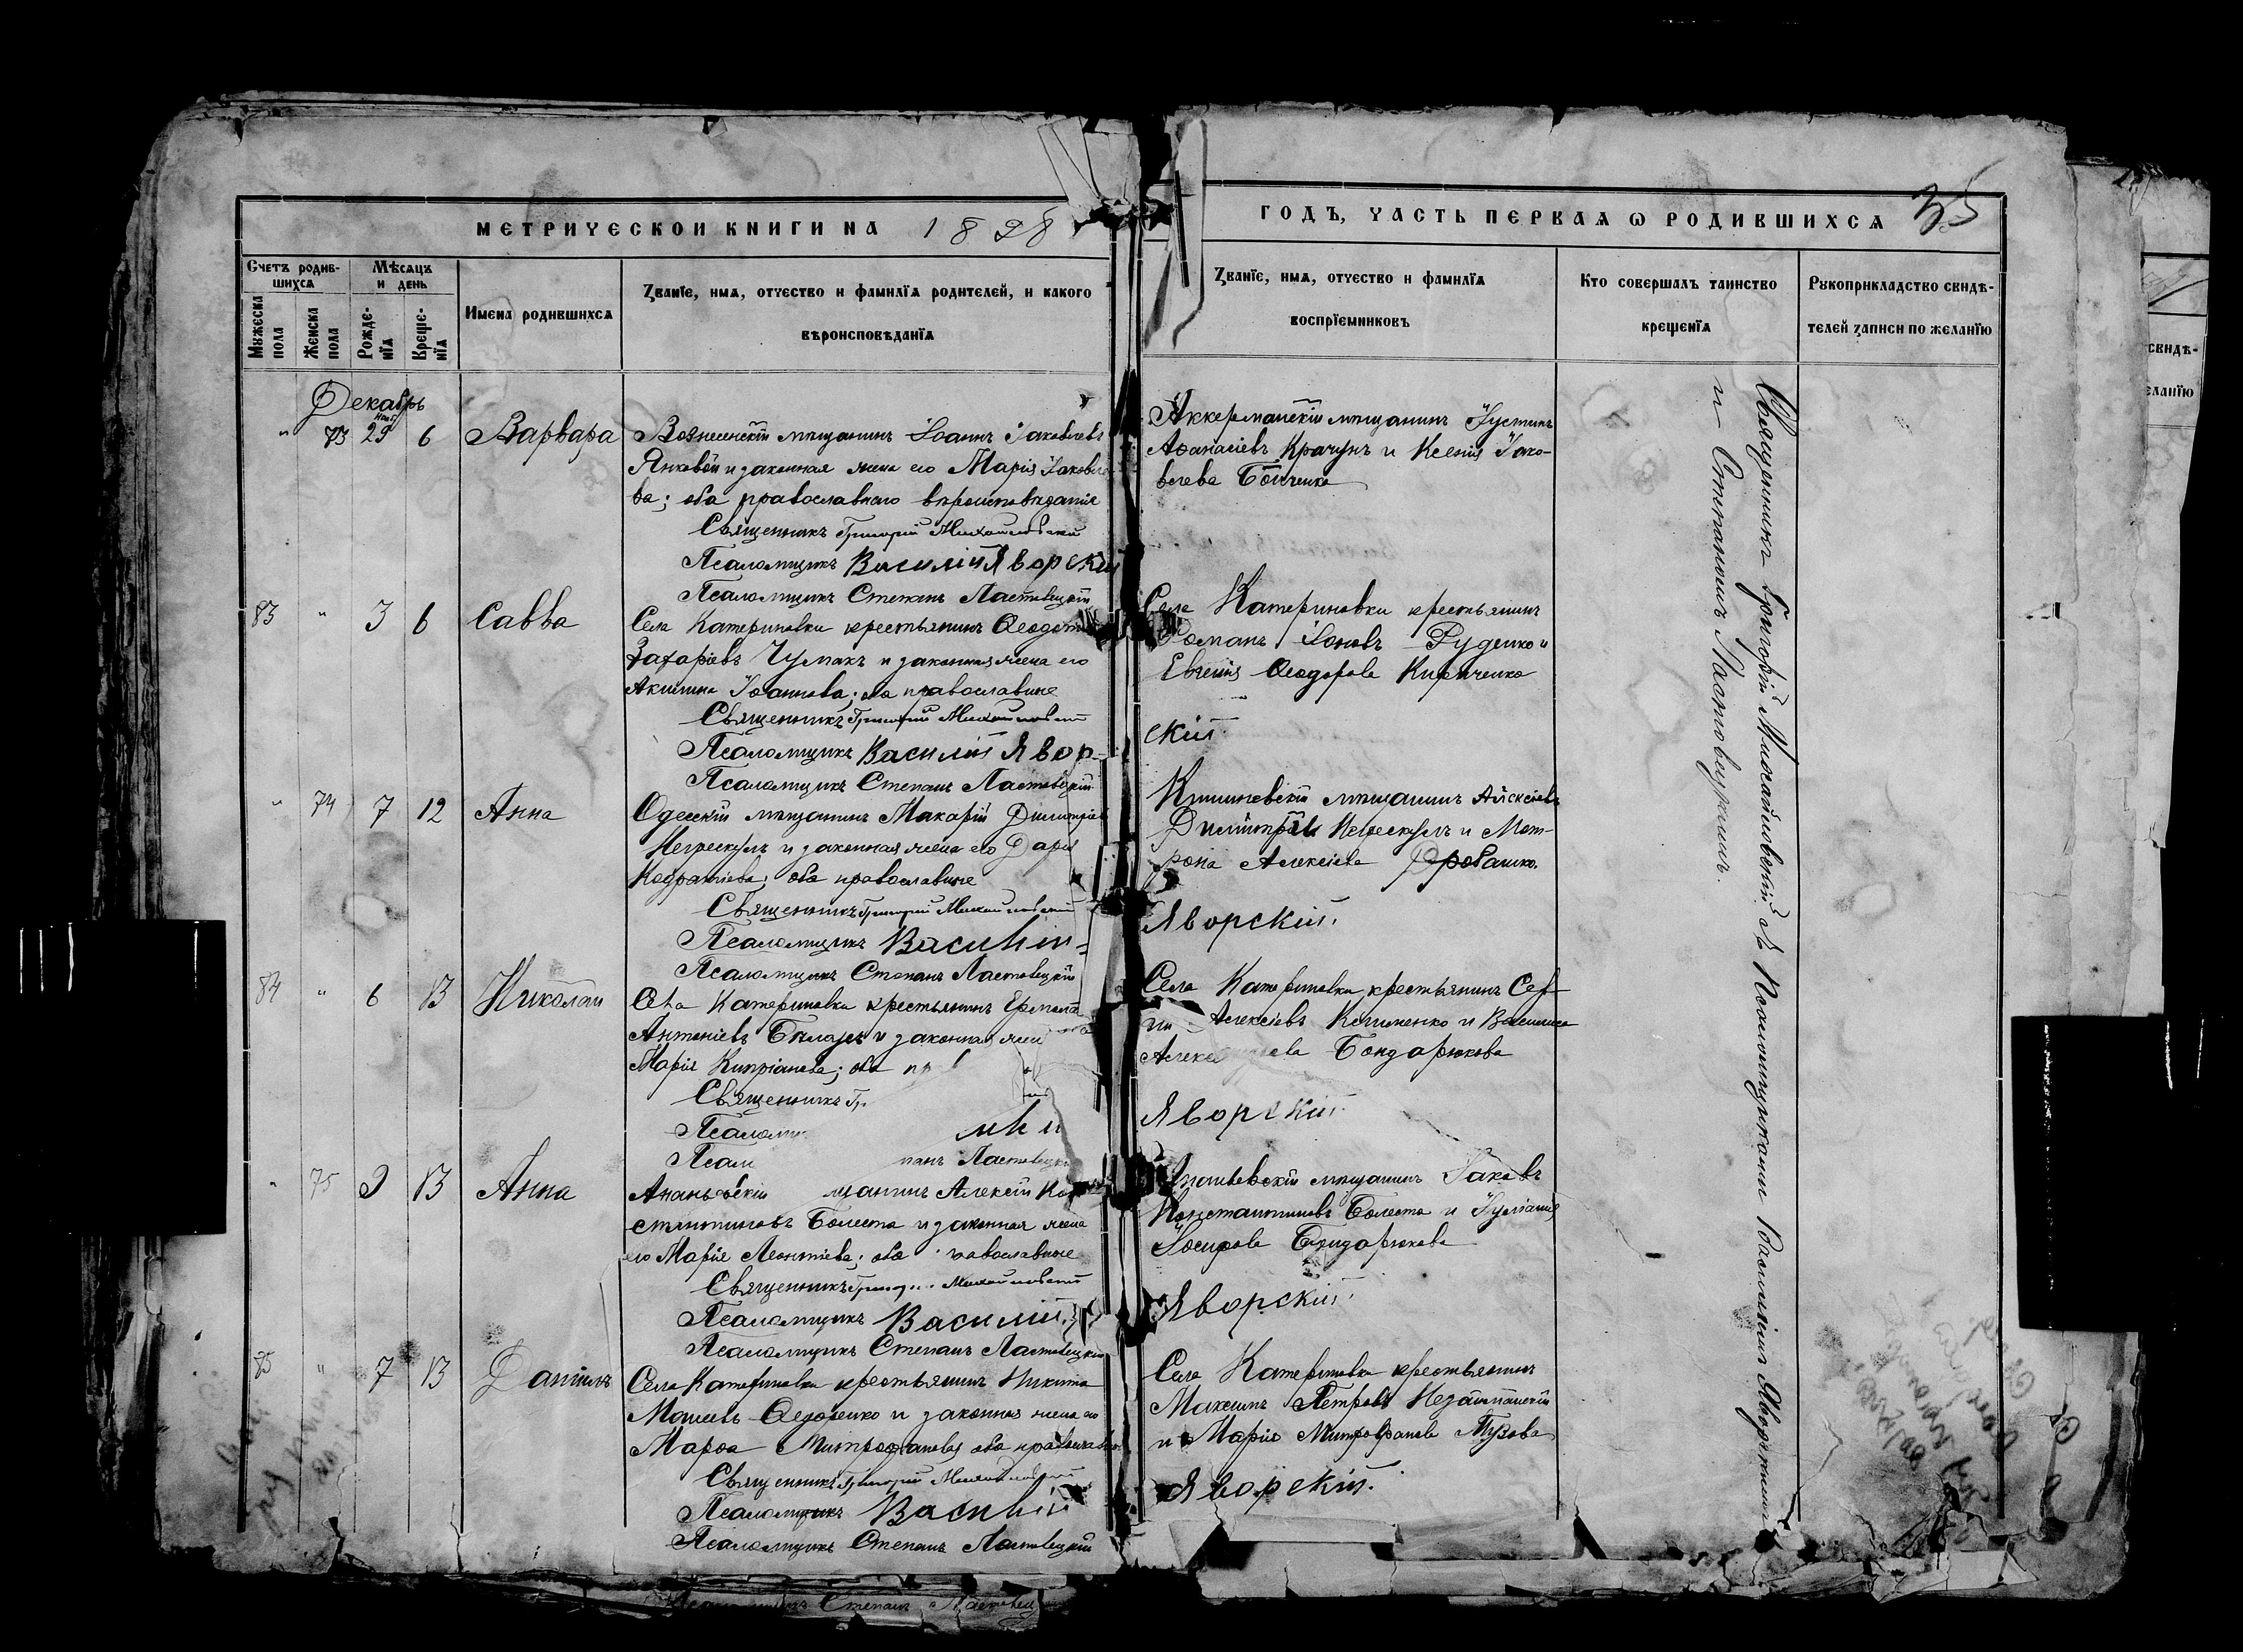 МЕТРИЧЕСКОЙ КНИГИ НА 1898
ГОДЪ, ЧАСТЬ ПЕРВАЯ Ѡ РОДИВШИХСЯ 35
Счетъ родив-
шихся
Мѣсяцъ
и день
Мужеска
пола
Женска
пола
Рожде-
нїя
Креще-
нїя
Имена родившихся
Званїе, имя, отчество и фамилїя родителей, и какого
вѣроисповѣданїя
Званїе, имя, отчество и фамилїя
воспрїемниковъ
Кто совершалъ таинство
крещенїя
Рукоприкладство свидѣ-
телей записи по желанїю
Декабрь
" 73 29 6 Варвара
Вознесенскій мѣщанинъ Іоаннъ Іаковлевъ
и законная жена его Марія Іаковле-
ва; оба православнаго вѣроисповѣданія
Священникъ Григорій Михайловскій
Псаломщикъ Василій Яворскій
Псаломщикъ Степанъ Ластовецкій
Аккерманскій мѣщанинъ Іустинъ
Аѳанасіевъ Крачунъ и Ксенія Іако-
влева Бойченко
83 " 3 6 Савва
Села Катериновки крестьянинъ Ѳеодотъ
Захаріевъ Чумакъ и законная жена его
Акилина Іоаннова; оба православные
Священникъ Григорій Михайловскій
Псаломщикъ Василій Явор-
скій.
Псаломщикъ Степанъ Ластовецкій
Села Катериновки крестьянинъ
Романъ Іоновъ Руденко и
Евгенія Ѳеодорова Кириченко
" 74 7 12 Анна
Одесскій мѣщанинъ Макарій Димитріевъ
Негрескулъ и законная жена его Дарія
Кодратіева; оба православные
Священникъ Григорій Михайловскій
Псаломщикъ Василій
Яворскій.
Псаломщикъ Степанъ Ластовецкій
Кишиневскій мѣщанинъ Алексіевъ
Димитріевъ Негрескулъ и Мат-
рона Алексіева
84 " 6 13 Николай
Села Катериновки крестьянинъ
Антоніевъ и законная жена
Марія Кипріанова; оба
Священникъ
Яворскій.
Ластовецкій
Села Катериновки крестьянинъ Сер-
гій Алексіевъ Клименко и Василиса
Бондарюкова
" 75 9 13 Анна
Ананьевскій мѣщанинъ Алексій Кон-
стантиновъ Болеста и законная жена
его Марія Леонтіева; оба православные
Священникъ Михайловскій
Псаломщикъ Василій
Яворскій.
Псаломщикъ Степанъ Ластовецкій
Ананьевскій мѣщанинъ Іаковъ
Константиновъ Болеста и Іуліанія
Іосифова Бондарюкова
85 " 7 13 Даніилъ
Села Катериновки крестьянинъ Никита
Моисеевъ Ѳедоренко и законная жена его
Марѳа Митрофанова, оба православные
Священникъ Григорій Михайловскій
Псаломщикъ Василій
Яворскій.
Псаломщикъ Степанъ Ластовецкій
Села Катериновки крестьянинъ
Максимъ Петровъ
и Марія Митрофанова
Священникъ Григорій Михайловскій съ Псаломщиками Василіемъ Яворскимъ
и Стефаномъ Ластовецкимъ.
свидѣ-
еланїю
Степанъ